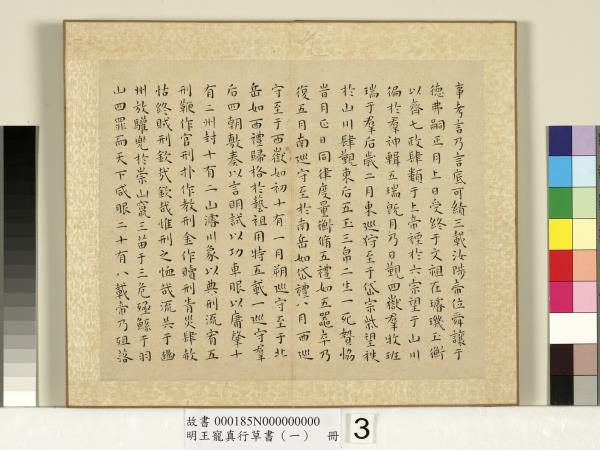 事考言乃言底可績三載汝陟帝位舜讓于
德弗嗣正月上日受終于文祖在璿璣玉衡
以齊七政肆類于上帝禋於六宗望于山川
徧於羣神輯五瑞旣月乃日覲四嶽羣牧班
瑞于羣后歲二月東巡狩至于岱宗柴望秩
於山川肆覲東后五玉三帛二生一死贄恊
旹月正日同律度量衡脩五禮如五器卒乃
復五月南巡守至於南岳如岱禮八月西巡
守至于西嶽如初十有一月朔巡守至于北
岳如西禮歸格於藝祖用特五載一巡守羣
后四朝敷奏以言明試以功車服以庸肇十
有二州封十有二山濬川象以典刑流宥五
刑鞭作官刑扑作教刑金作贖刑眚災肆赦
怙終賊刑欽哉欽哉惟刑之恤哉流共于幽
州放驩兜於崇山竄三苗于三危殛鯀于羽
山四罪而天下咸服二十有八載帝乃殂落
故書 000185N000000000
明王寵真行草書（一） 冊
3